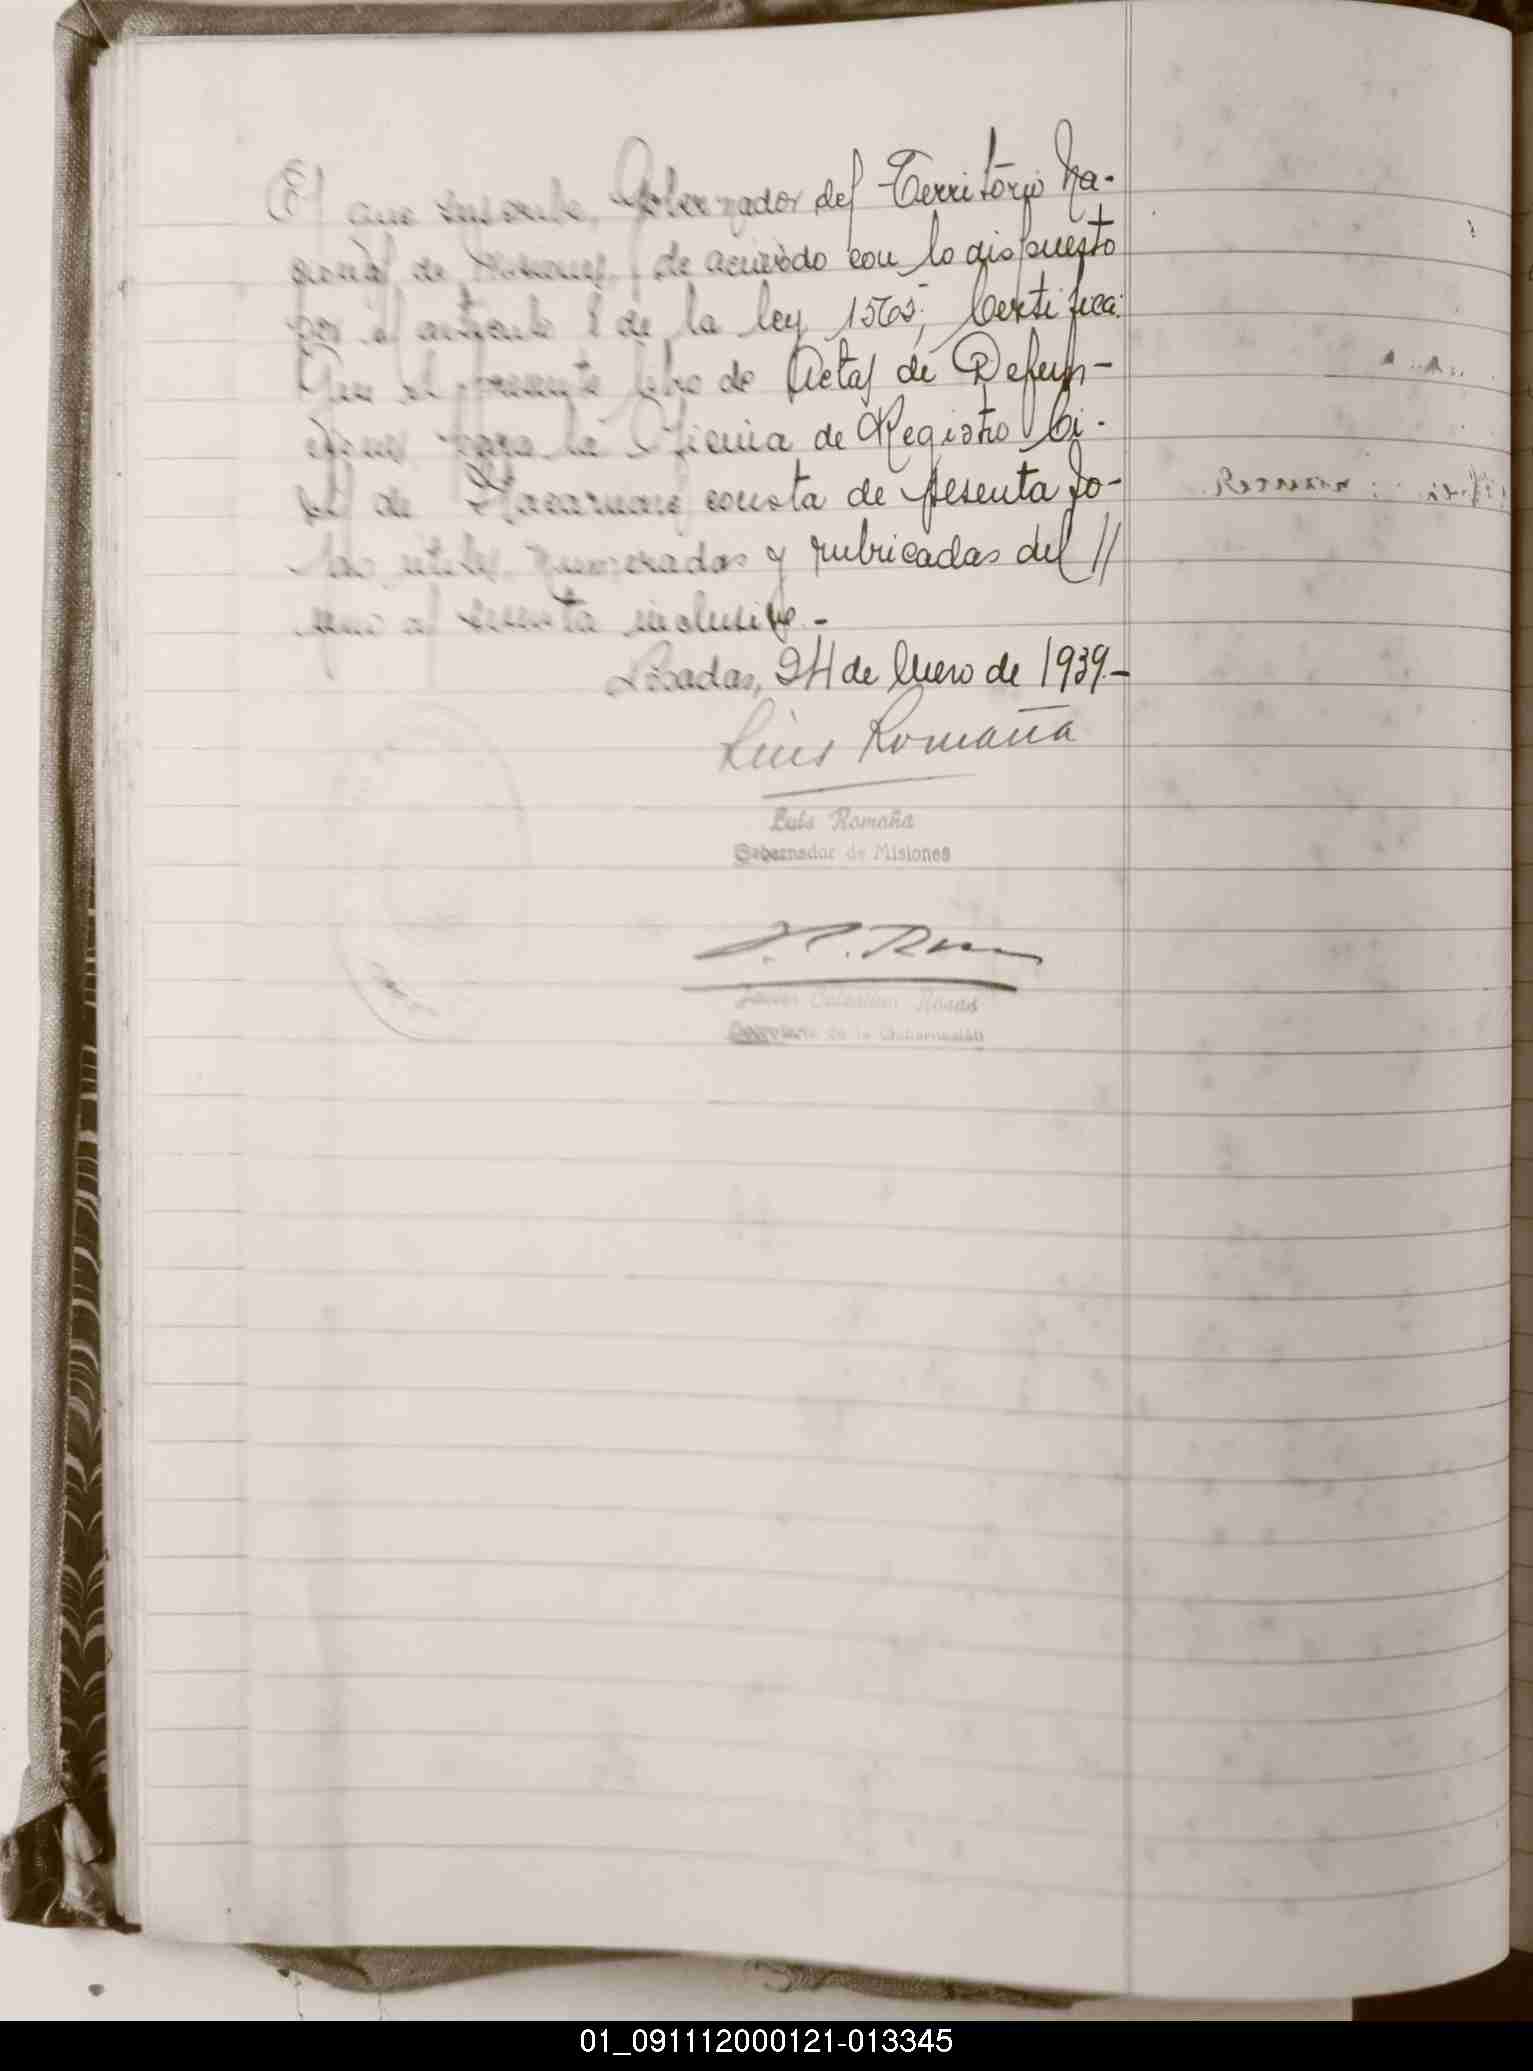 El que suscribe, Gobernador del Territorio Na-
cional de Misiones, de acuerdo con lo dispuesto
por el artículo 8 de la ley 1565; Certifica:
Que el presente libro de Actas de Defun-
ciones para la Oficina de Registro Ci-
vil de consta de sesenta fo-
jas utiles, numeradas y rubricadas del //
uno al sesenta inclusive.-
Posadas, 24 de Enero de 1939.-
Luis Romaña
Luis Romaña
Gobernador de Misiones
Javier Rosas
Secretario de la Gobernación
01_091112000121-013345